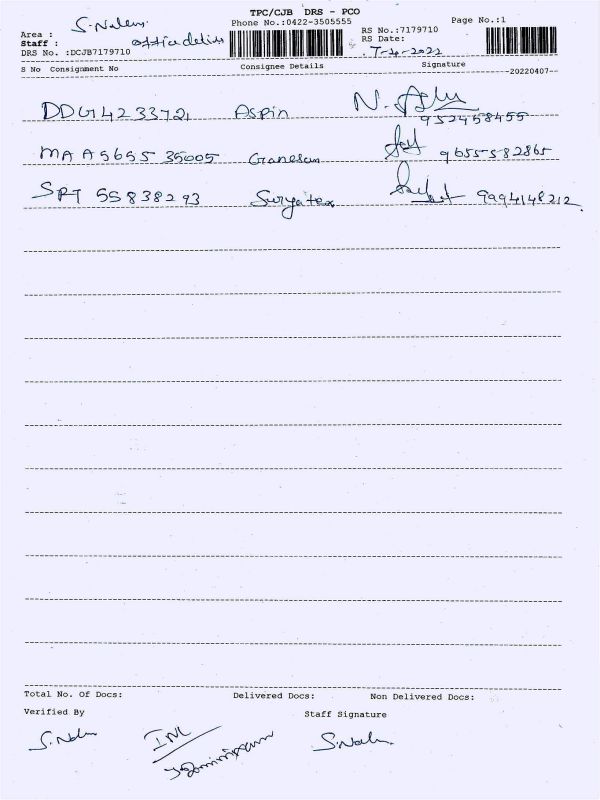 TPC/CJB DRS - PCO
Phone No.:0422-3505555
Page No.:1
Area : S. Nalem
Staff : office delies
RS No.:7179710
RS Date: 7-10-2022
DRS No. :DCJB7179710
S No Consignment No Consignee Details Signature
20220407
DDG14233721 Aspin
952458455
MAA565535005 Ganesan 9655582865
SPT 55838293 Suryatex 9994148212
Total No. Of Docs: Delivered Docs: Non Delivered Docs:
Verified By Staff Signature